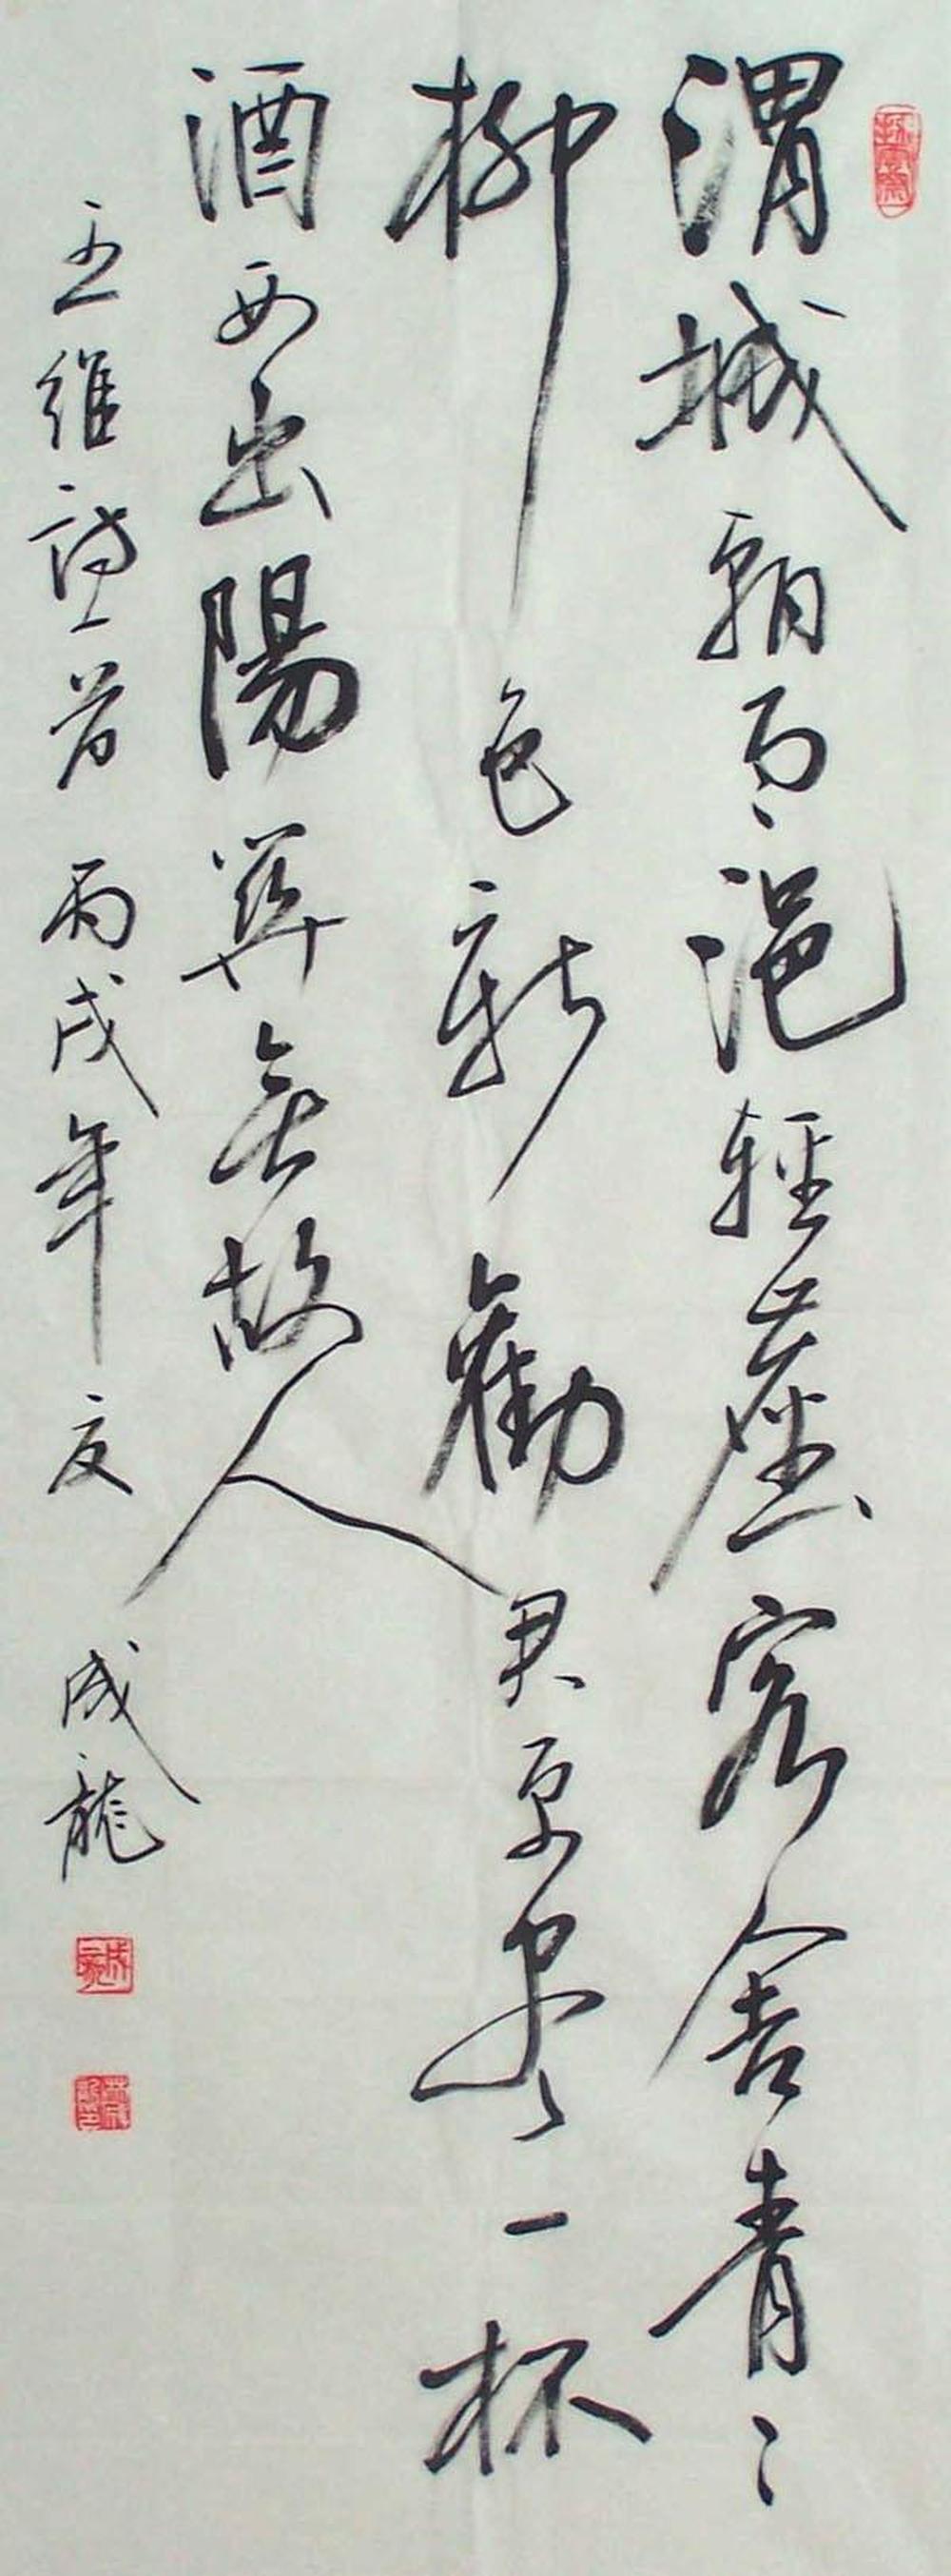 渭城朝雨浥輕塵客舍青々
柳色新勸君更盡一杯
酒西出陽關無故人
王維詩一首 丙戌年夏 成龍